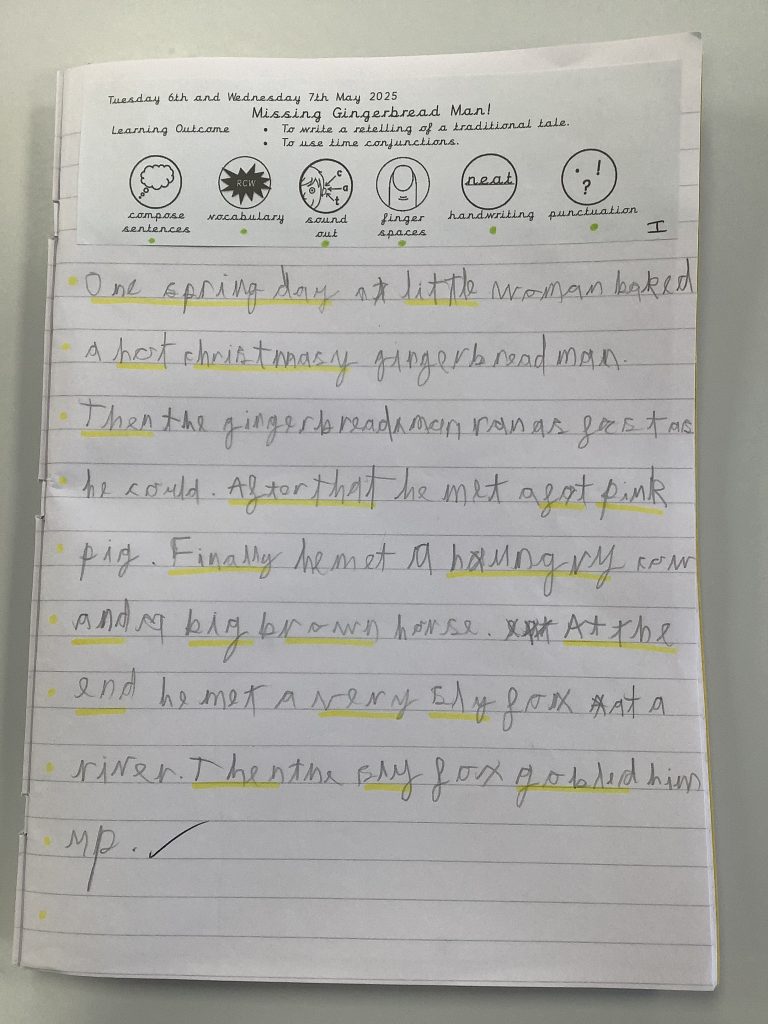 Tuesday 6th and Wednesday 7th May 2025
Missing Gingerbread Man!
Learning Outcome
• To write a retelling of a traditional tale.
• To use time conjunctions.
RCW
c
a
t
neat
. ! ?
compose sentences
vocabulary
sound out
finger spaces
handwriting
punctuation
I
One spring day a little woman baked
a hot christmasy gingerbread man.
Then the gingerbread man ran as fast as
he could. After that he met a fat pink
pig. Finally he met a haungry cow
and a big brown horse. At the
end he met a very sly fox at a
river. Then the sly fox gobled him
up.